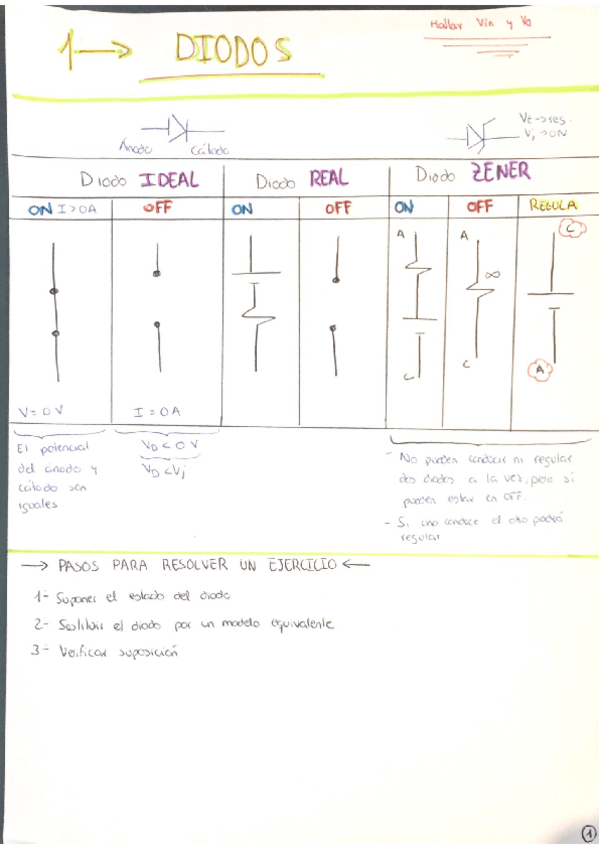 Hallar Vin y Vo
1 → DIODOS
Ánodo
Cátodo
Vz → reg.
Vj → ON
Diodo IDEAL
Diodo REAL
Diodo ZENER
ON I>0A
OFF
ON
OFF
ON
OFF
REGULA
A
C
A
∞
C
C
A
V = 0V
I = 0A
El potencial
del ánodo y
cátodo son
iguales
VD < 0 V
VD < Vj
- No pueden conducir ni regular
dos diodos a la vez, pero si
pueden estar en OFF.
- Si uno conduce el otro podrá
regular
→ PASOS PARA RESOLVER UN EJERCICIO ←
1- Suponer el estado del diodo
2- Sustituir el diodo por un modelo equivalente
3- Verificar suposición
1